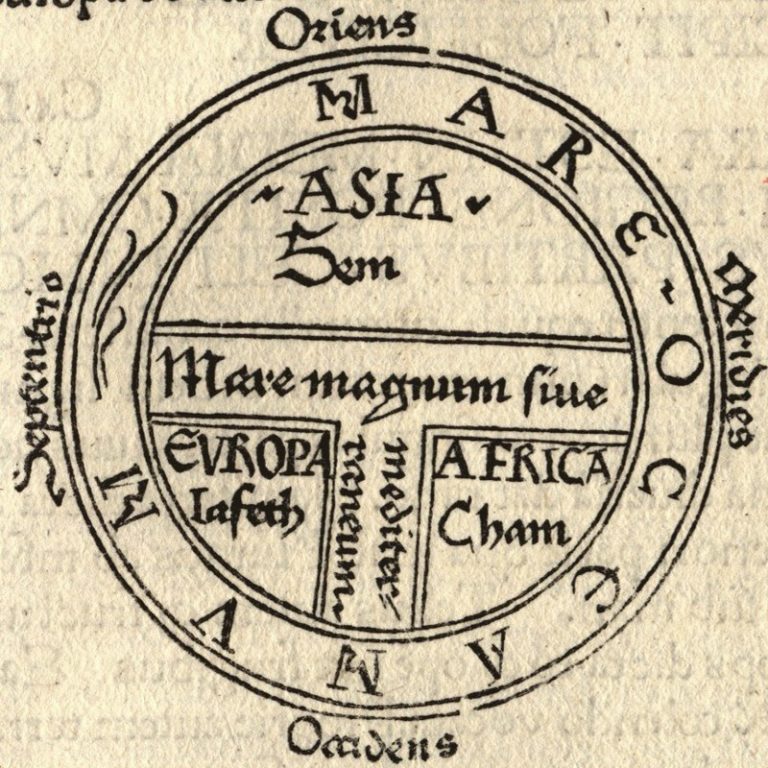 Oriens
MARE ~ OCEANVM
~ ASIA ~
Sem
Septentrio
Meridies
Mare magnum siue
mediter/
raneum ~
EVROPA
Iafeth
AFRICA
Cham
Occidens